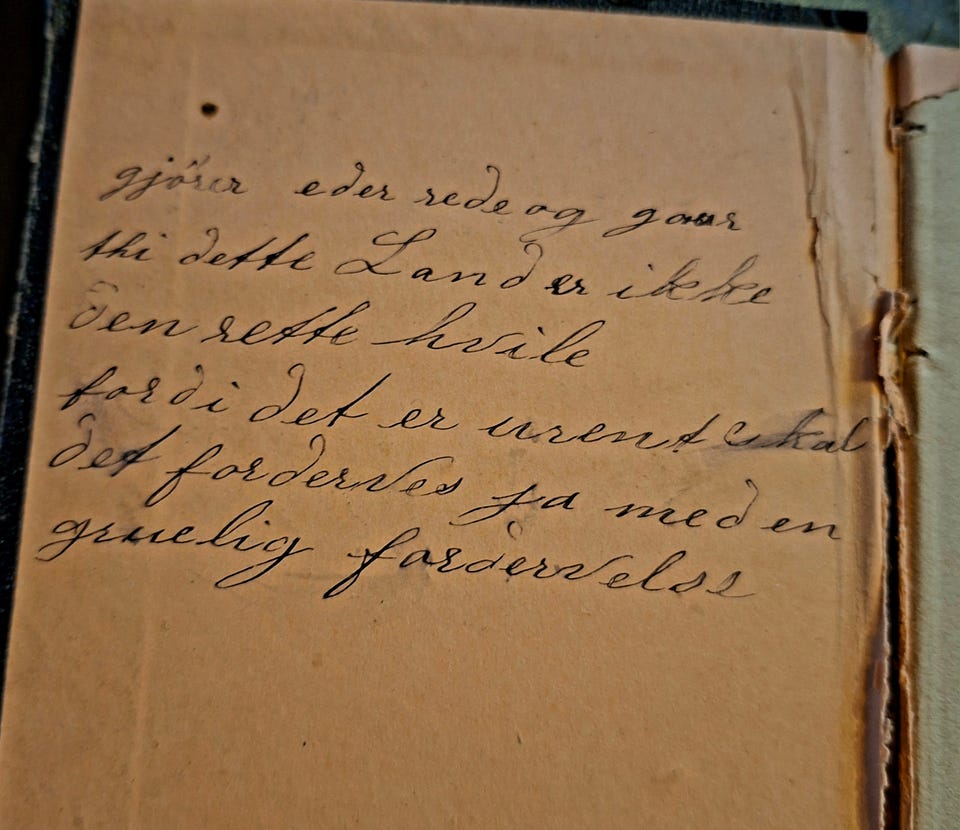 gjörer eder rede og gaar
thi dette Land er ikke
den rette hvile
fordi det er urent skal
det fordervés ja med en
gruelig fordervelse